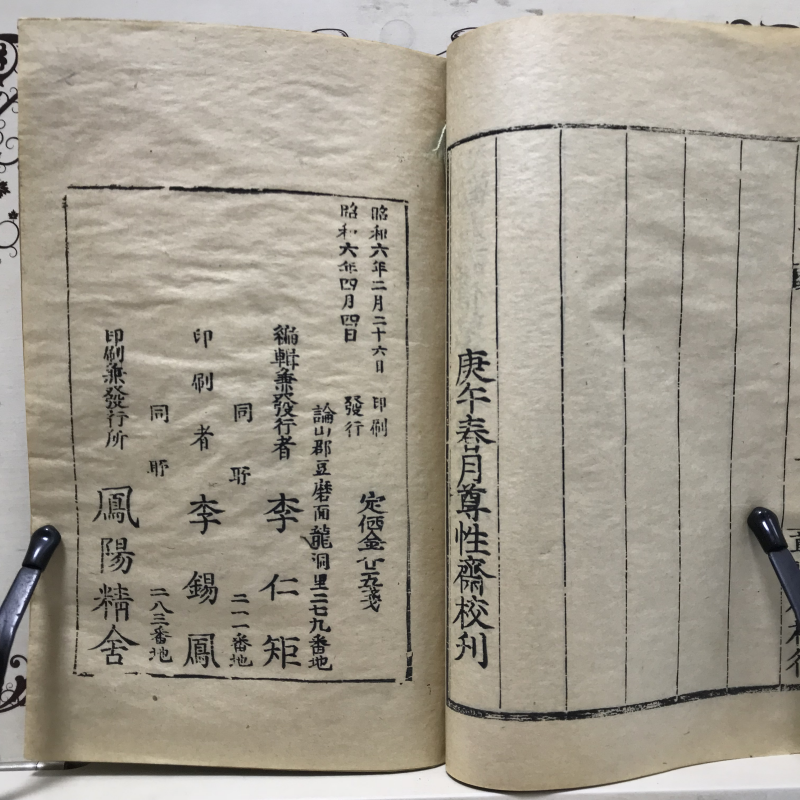 庚午春月尊性齋校刊
昭和六年二月二十六日 印刷
昭和六年四月四日 發行
定価金廿五戔
論山郡豆磨面龍洞里二七九番地
編輯兼發行者 李仁矩
同所 二一一番地
印刷者 李錫鳳
同所 二八三番地
印刷兼發行所 鳳陽精舍